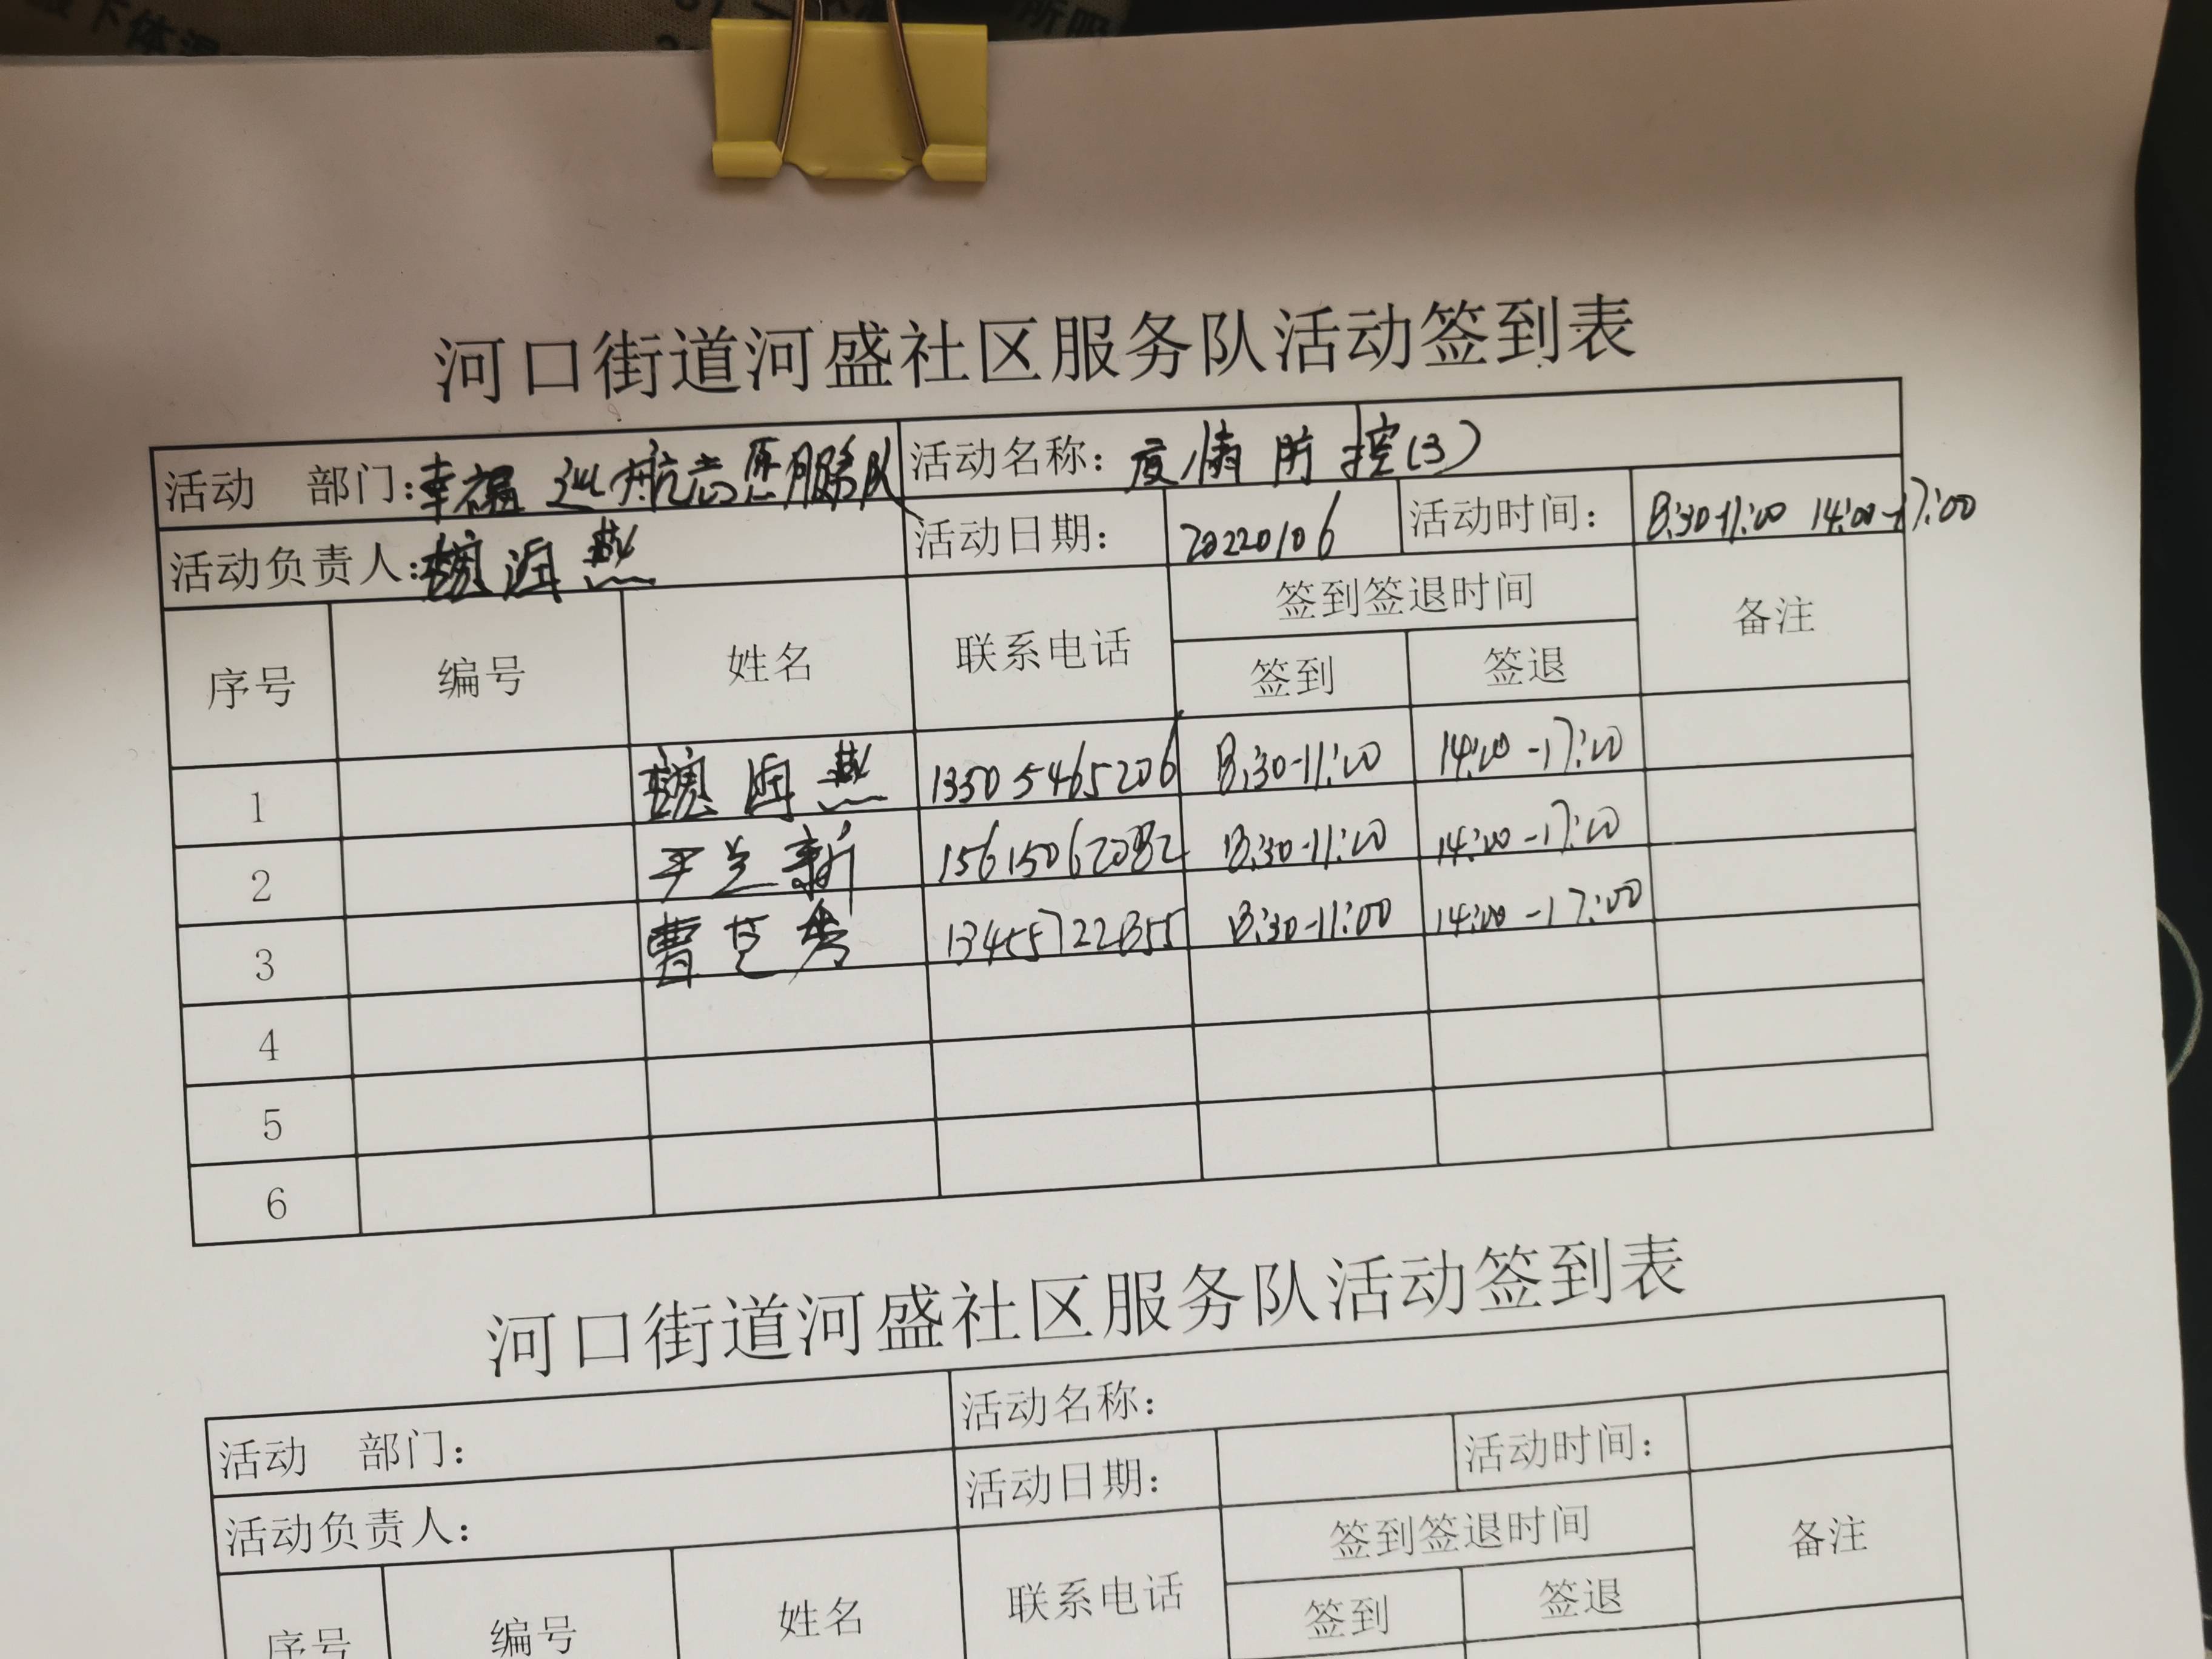 河口街道河盛社区服务队活动签到表
活动 部门:幸福巡航志愿服务队 活动名称: 疫情防控(3)
活动负责人: 润燕 活动日期: 20220106 活动时间: 8:30-11:00 14:00-17:00
序号 编号 姓名 联系电话 签到签退时间 备注
签到 签退
1 润燕 13505465206 8:30-11:00 14:00-17:00
2 兰新 15615062082 8:30-11:00 14:00-17:00
3 曹 秀 13455722855 8:30-11:00 14:00-17:00
4
5
6
河口街道河盛社区服务队活动签到表
活动 部门: 活动名称:
活动负责人: 活动日期: 活动时间:
序号 编号 姓名 联系电话 签到签退时间 备注
签到 签退